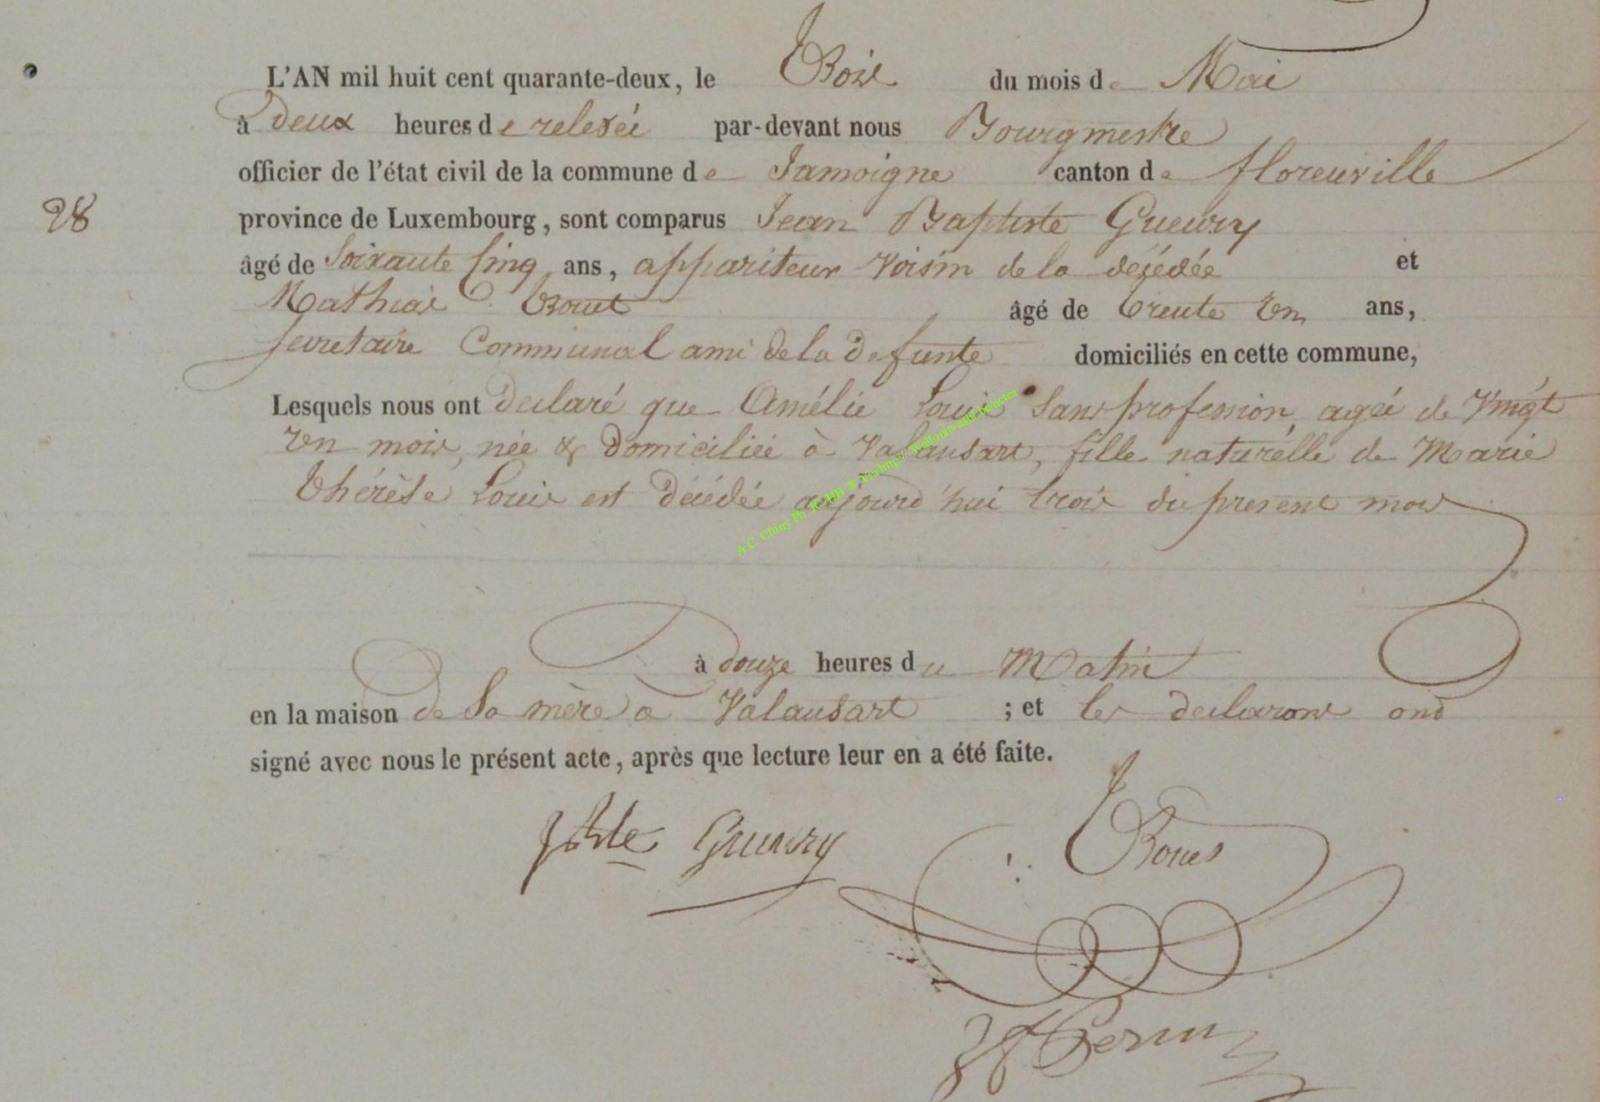 L'AN mil huit cent quarante-deux, le Trois du mois de Mai
à deux heures de relevée par-devant nous Bourgmestre
officier de l'état civil de la commune de Jamoigne canton de florenville
28 province de Luxembourg, sont comparus Jean Baptiste Gueury
âgé de Soixante Cinq ans, appariteur Voisin de la décédée et
Mathias âgé de trente un ans,
Secretaire Communal ami de la defunte domiciliés en cette commune,
Lesquels nous ont declaré que Amélie Louis Sans profession, agée de Vingt
un mois, née & domiciliée à Valansart, fille naturélle de Marie
thérèse Louis est décédée aujourd'hui trois du present mois
à douze heures du Matin
en la maison de Sa mère a Valansart ; et les declarans ont
signé avec nous le présent acte, après que lecture leur en a été faite.
Gueury